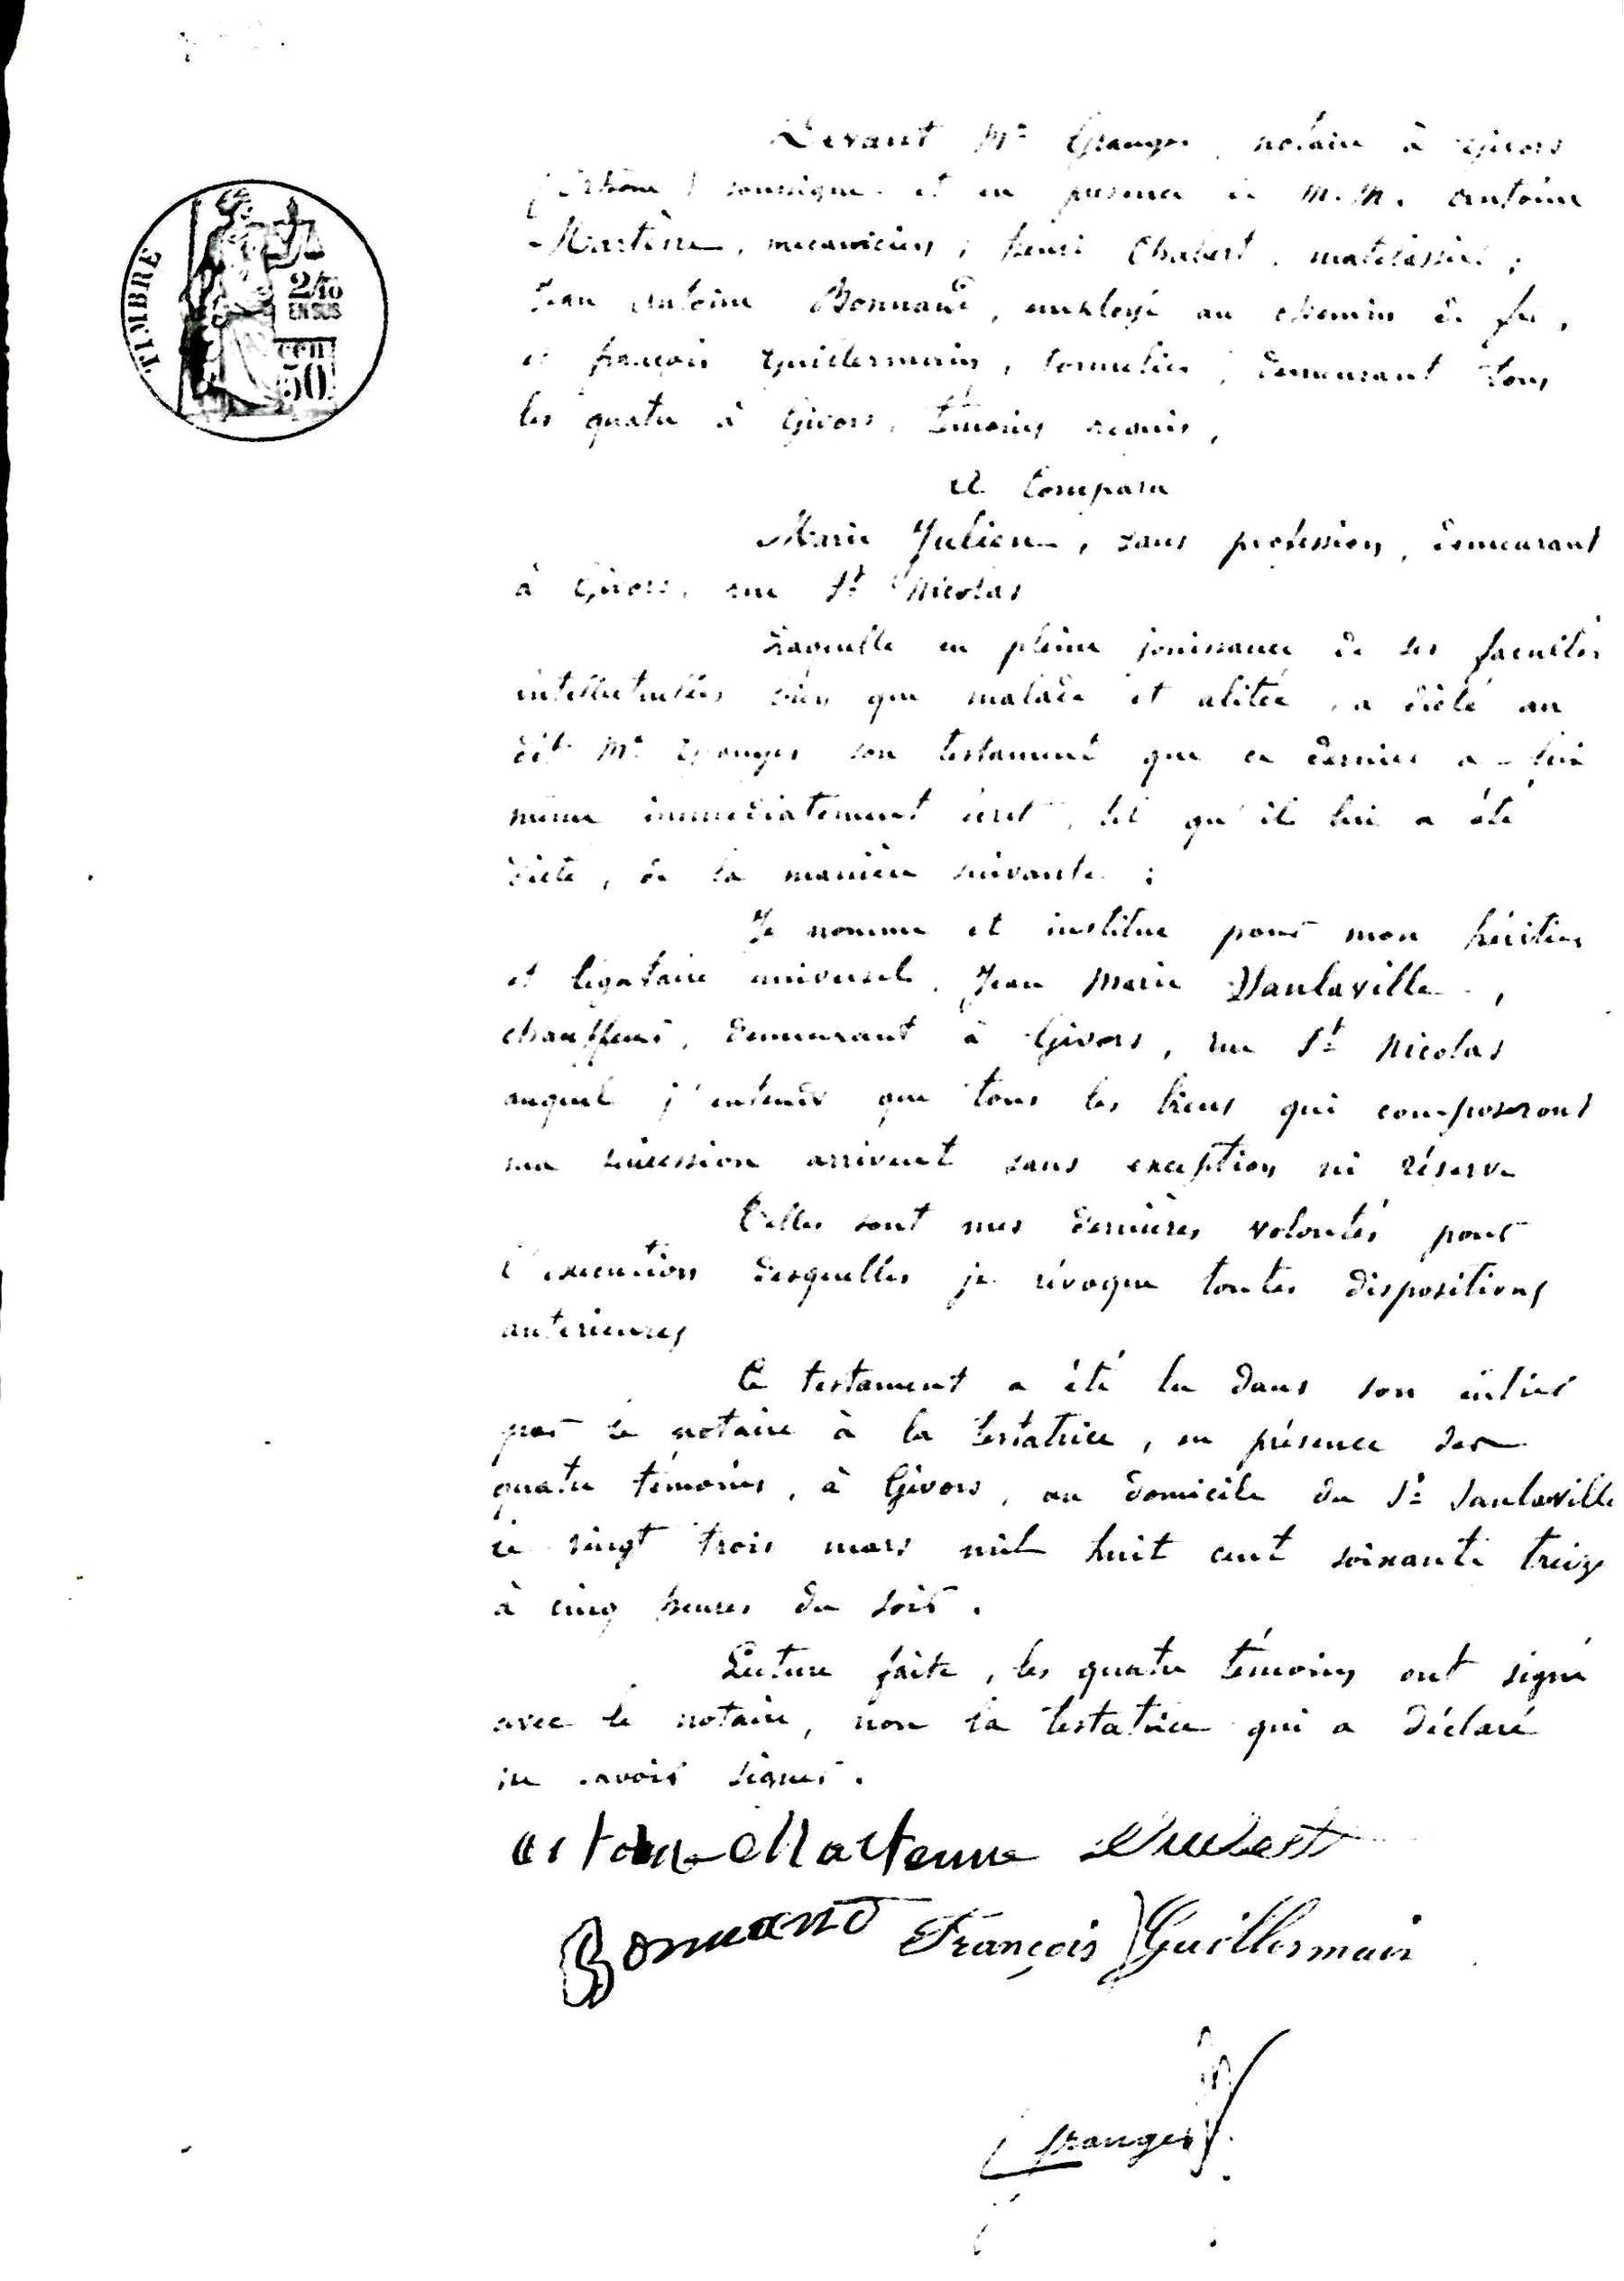 Devant Me Granger notaire à Givors
(Rhône) soussigné et en présence de M.M. Antoine
Martène, mécanicien, henri Chabert, matelassier,
Jean Antoine Bonnand, employé au chemin de fer,
et françois Guillermain, tonnelier, demeurant tous
les quatre à Givors, témoins requis,
A Comparu
Marie Julien, sans profession, demeurant
à Givors, rue St Nicolas
Laquelle en pleine jouissance de ses facultés
intellectuelles bien que malade et alitée, a dicté au
dit Me Granger son testament que ce dernier a lui
même immédiatement écrit, tel qu'il lui a été
dicté, de la manière suivante :
Je nomme et institue pour mon héritier
et légataire universel, Jean Marie Vaulaville,
chauffeur, demeurant à Givors, rue St Nicolas
auquel j'entends que tous les biens qui composeront
ma succession arrivent sans exception ni réserve
Telles sont mes dernières volontés pour
l'exécution desquelles je révoque toutes dispositions
antérieures
Ce testament a été lu dans son entier
par le notaire à la testatrice, en présence des
quatre témoins, à Givors, au domicile du Sr Vaulaville
le vingt trois mars mil huit cent soixante treize
à cinq heures du soir.
Lecture faite, les quatre témoins ont signé
avec le notaire, non la testatrice qui a déclaré
ne savoir signer.
Martenne
Bonnand François Guillermain
Granger
TIMBRE
2/10
EN SUS
50